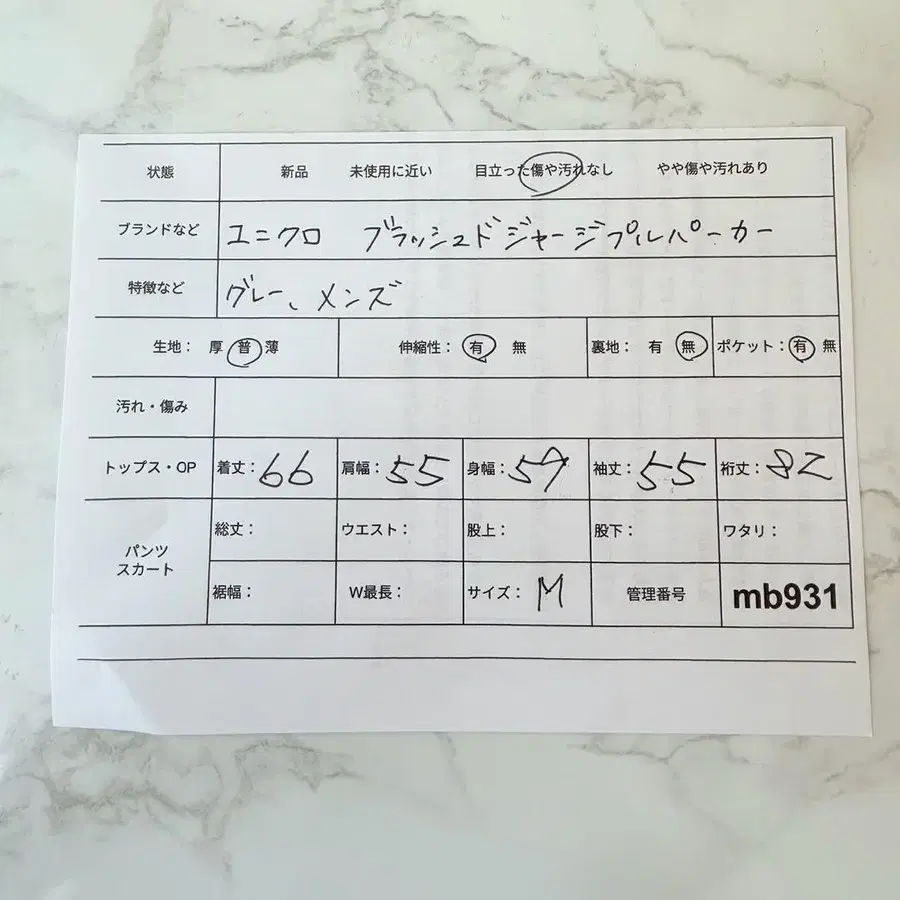 状態 新品 未使用に近い 目立った傷や汚れなし やや傷や汚れあり
ブランドなど ユニクロ ブラッシュドジャージプルパーカー
特徴など グレー、メンズ
生地： 厚 普 薄 伸縮性： 有 無 裏地： 有 無 ポケット： 有 無
汚れ・傷み
トップス・OP 着丈：66 肩幅：55 身幅：59 袖丈：55 裄丈：82
パンツ スカート 総丈： ウエスト： 股上： 股下： ワタリ：
裾幅： W最長： サイズ： M 管理番号 mb931